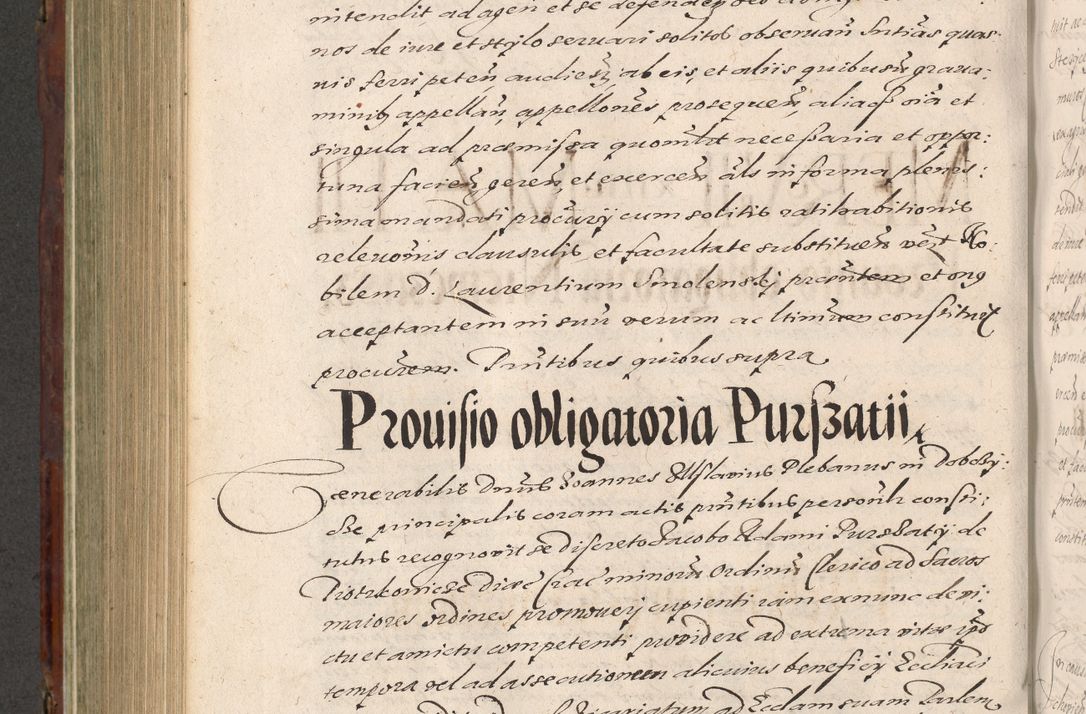 intendit ad agen et se defenden
nos de iure et stylo seruari solitos obseruan sntias quas-
uis ferri peten audien ab eis, et aliis quibusuis graua:
minib appellan, appellones prosequen, aliaq oia et
singula ad praemissa quomlt necessaria et oppor:
tuna facien geren, et exercen als in forma plenis:
sima mandati procurij cum solitis ratihabitionis
releuonis clausulis et facultate substituen vent No:
bilem D. Laurentium Smolenskj praesentem et onq
acceptantem in suu verum ac ltimum constituit
procurem. Pnntibus quibus supra
Prouisio obligatoria Purszatii
Venerabilis Dnus Ioannes Plebanus in
principalis coram actis pntibus personlr consti:
tutus recognouit se discreto Jacobo Adami Purszatij de
Piotrkowicze Diac Crac minoru Ordinu Clerico ad Sacros
maiores ordines promoueri cupienti iam ex nunc de vi:
ctu et amictu competenti prouidere ad extrema vitae ipso
tempora vel ad assecutionem alicuius beneficij Ecclaci
ad Ecclam suam Parlem